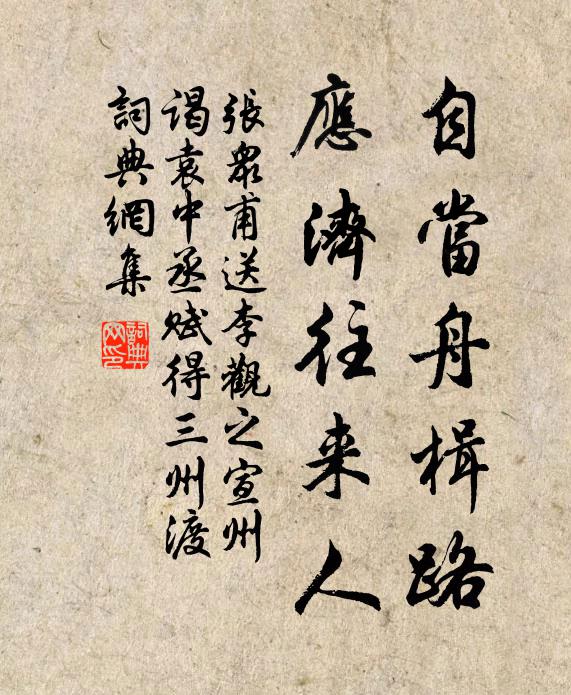 自當舟楫路
應濟往来人
張眾甫送李觀之宣州
謁袁中丞賦得三州渡
詞典網集
詞典网印